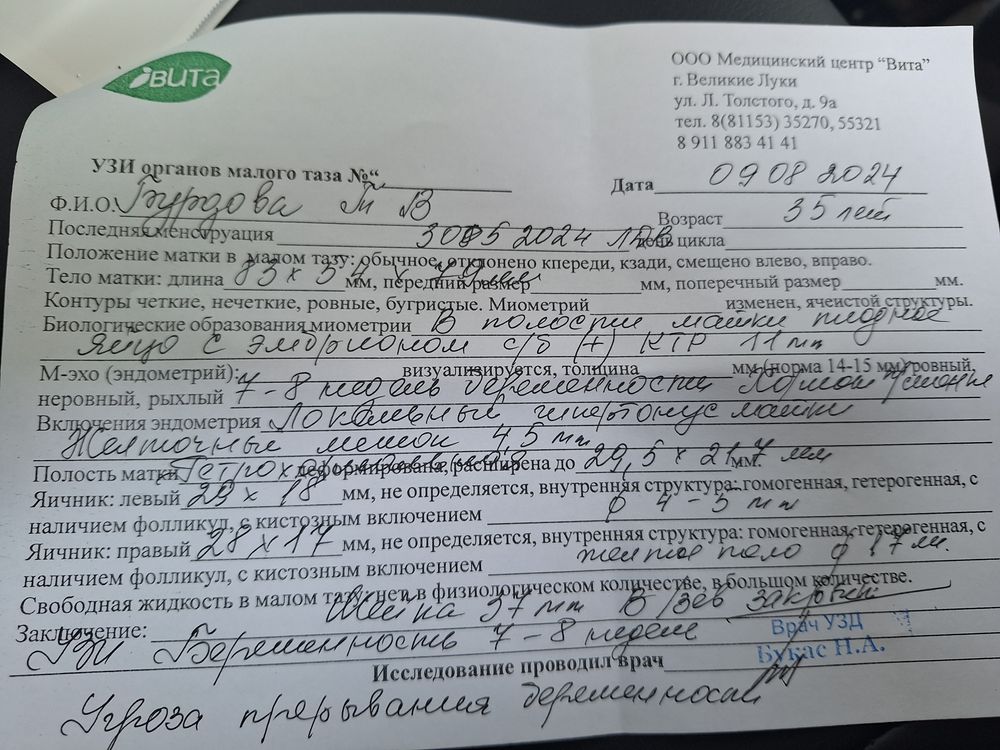 ВИТА
ООО Медицинский центр “Вита”
г. Великие Луки
ул. Л. Толстого, д. 9а
тел. 8(81153) 35270, 55321
8 911 883 41 41
УЗИ органов малого таза №“
Дата 09 08 2024
Ф.И.О. Бурдова Т В
Возраст 35 лет
Последняя менструация 30 05 2024 день цикла
Положение матки в малом тазу: обычное, отклонено кпереди, кзади, смещено влево, вправо.
Тело матки: длина 83 х 54 х мм, передний размер мм, поперечный размер мм.
Контуры четкие, нечеткие, ровные, бугристые. Миометрий изменен, ячеистой структуры.
Биологические образования миометрии В полости матки плодное
яйцо с эмбрионом с/б (+) КТР 11 мм
М-эхо (эндометрий): визуализируется, толщина мм (норма 14-15 мм) ровный,
неровный, рыхлый 7-8 недель беременности
Включения эндометрия Локальный гипертонус матки
Желточный мешок 4,5 мм
Полость матки деформирована, расширена до 29,5 х 21,7 мм мм.
Яичник: левый 29 х 18 мм, не определяется, внутренняя структура: гомогенная, гетерогенная, с
наличием фолликул, с кистозным включением ф 4-5 мм
Яичник: правый 28 х 17 мм, не определяется, внутренняя структура: гомогенная, гетерогенная, с
наличием фолликул, с кистозным включением желтое тело ф 17 мм.
Свободная жидкость в малом тазу: нет, в физиологическом количестве, в большом количестве.
Шейка 37 мм В/зев закрыт
Заключение:
УЗИ Беременность 7-8 недель
Врач УЗД
Букас Н.А.
Исследование проводил врач
Угроза прерывания беременности